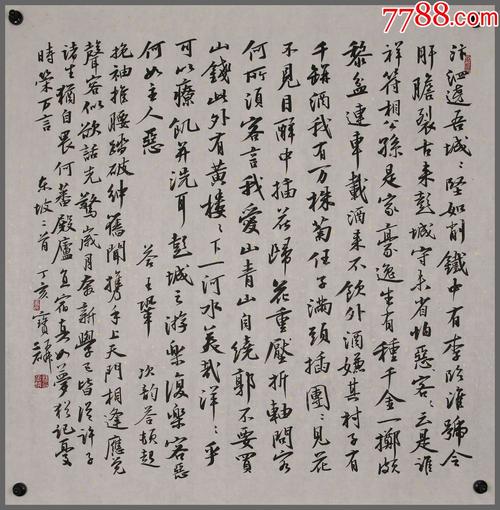 7788.com
汴泗遶吾城々堅如削鐵中有李臨淮號令
肝膽裂古来彭城守未省怕惡客々云是誰
祥符相公孫是家豪逸生有種千金一擲頗
黎盆連車載酒来不飲外酒嫌其村子有
千缾酒我有万株菊任子滿頭插團々見花
不見目醉中插花歸花重壓折軸問客
何所須客言我愛山青山自繞郭不要買
山錢此外有黄樓々下一河水美哉洋々乎
可以療飢并洗耳彭城之游樂復樂客惡
何如主人惡 答王鞏 次韵答頓起
挽袖推腰踏破紳舊聞攜手上天門相逢應覺
聲容似欲話先驚歲月奔新學已皆從許子
諸生猶自畏何蕃殿廬直宿真如夢猶記憂
時策万言 东坡二首 丁亥 寶麟